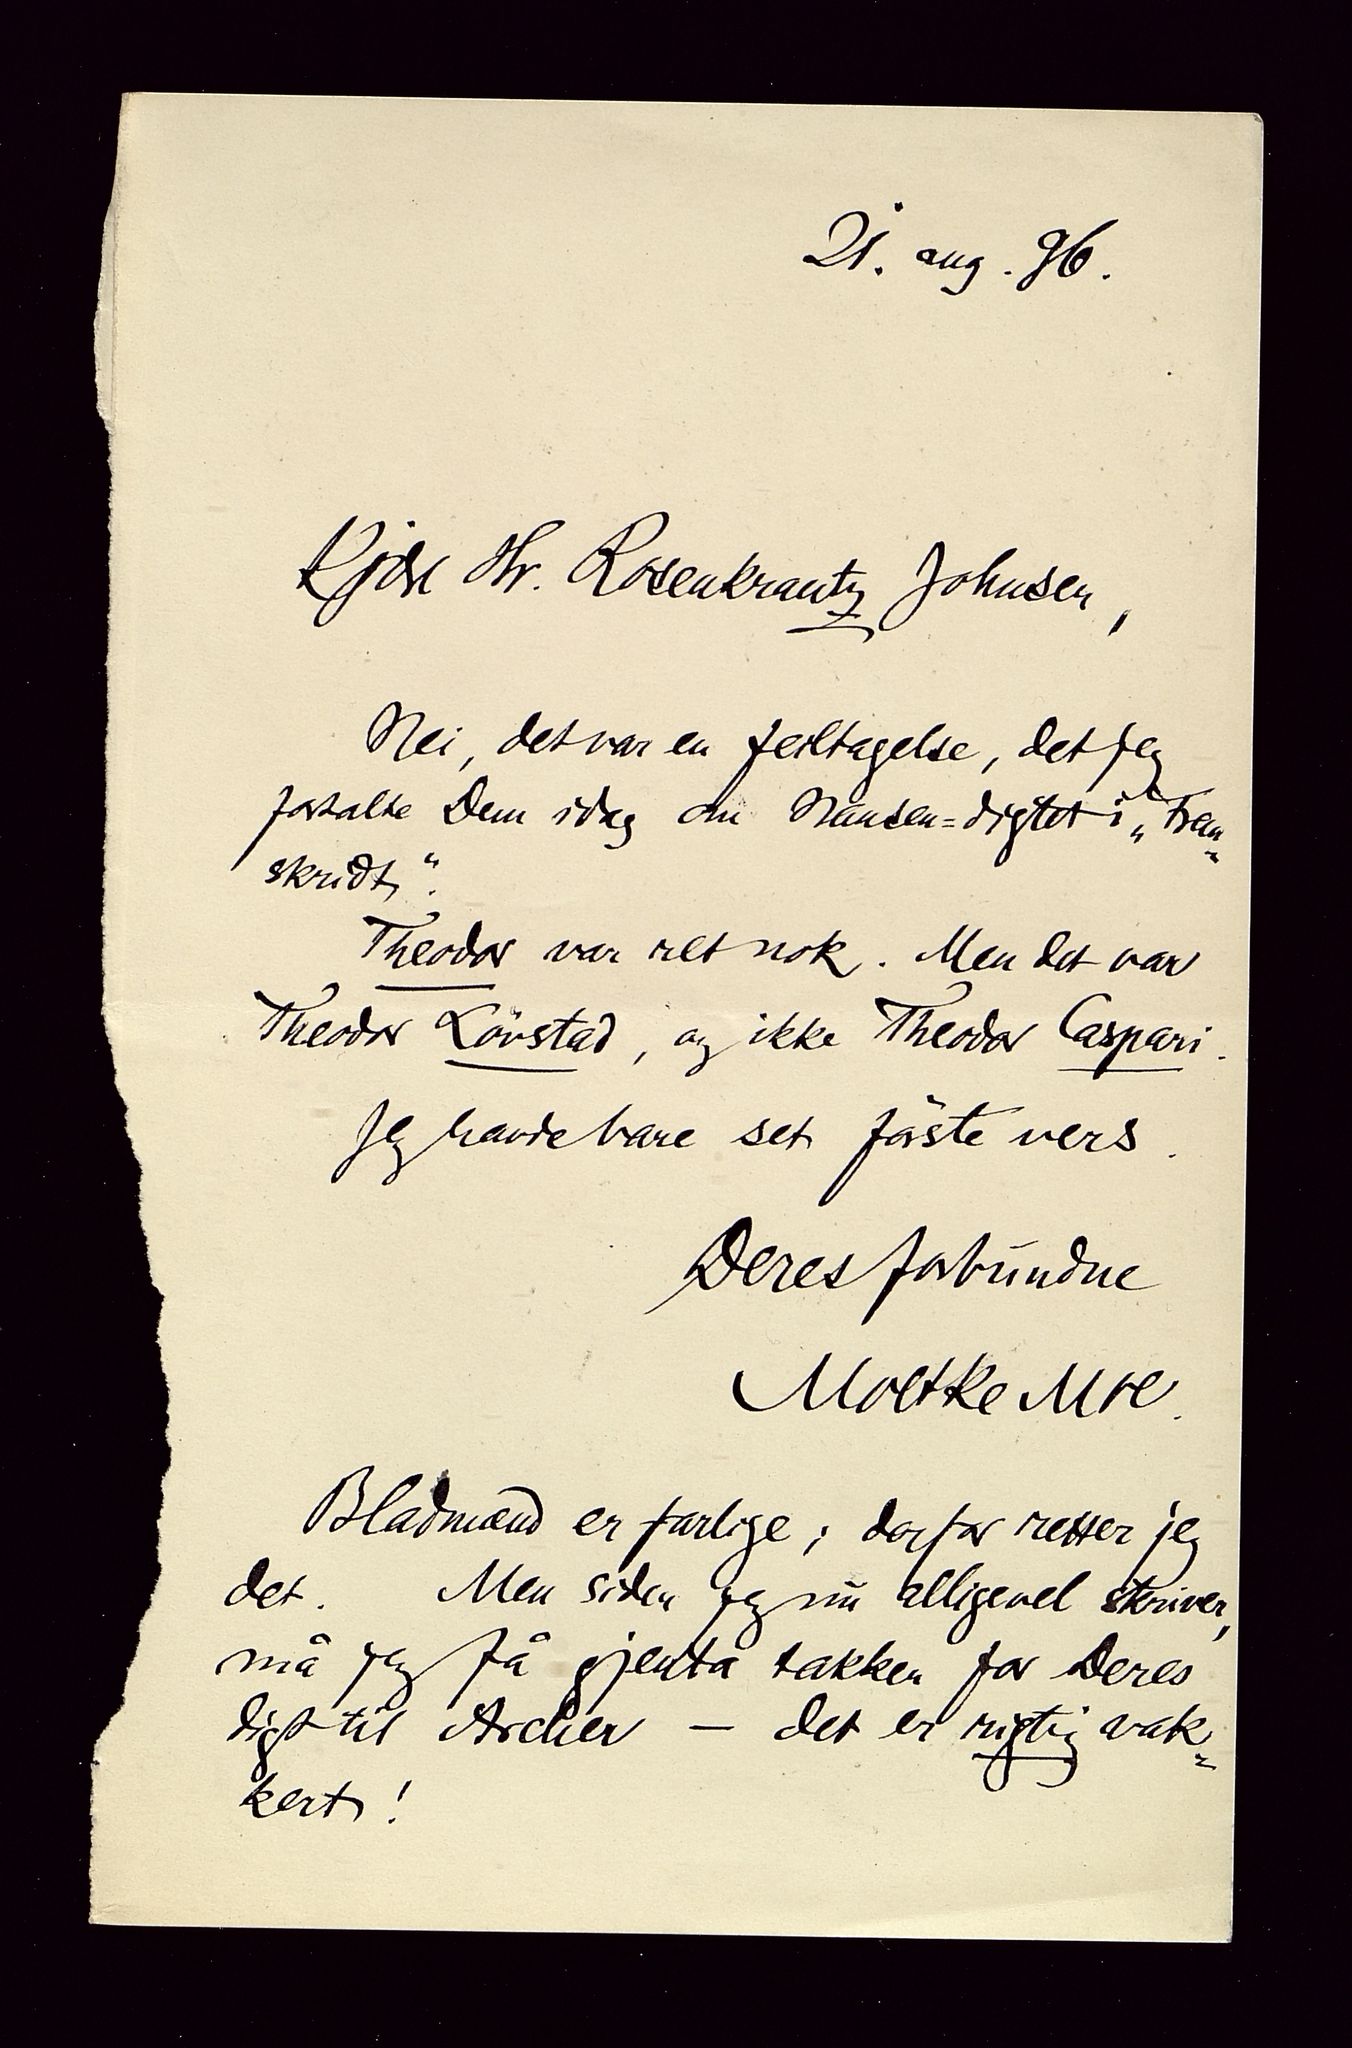 21. aug. 96.
Kjære Hr. Rosenkrantz Johnsen,
Nei, det var en feiltagelse, det jeg
fortalte Dem idag om Nansen=digtet i „Frem-
skridt“.
Theodor var ret nok. Men det var
Theodor Lövstad, og ikke Theodor Caspari.
Jeg havde bare set förste vers.
Deres forbundne
Moltke Moe.
Bladmænd er farlige; derfor retter jeg
det. Men siden jeg nu alligevel skriver,
må jeg få gjenta takken for Deres
digt til Archer — det er rigtig vak-
kert!